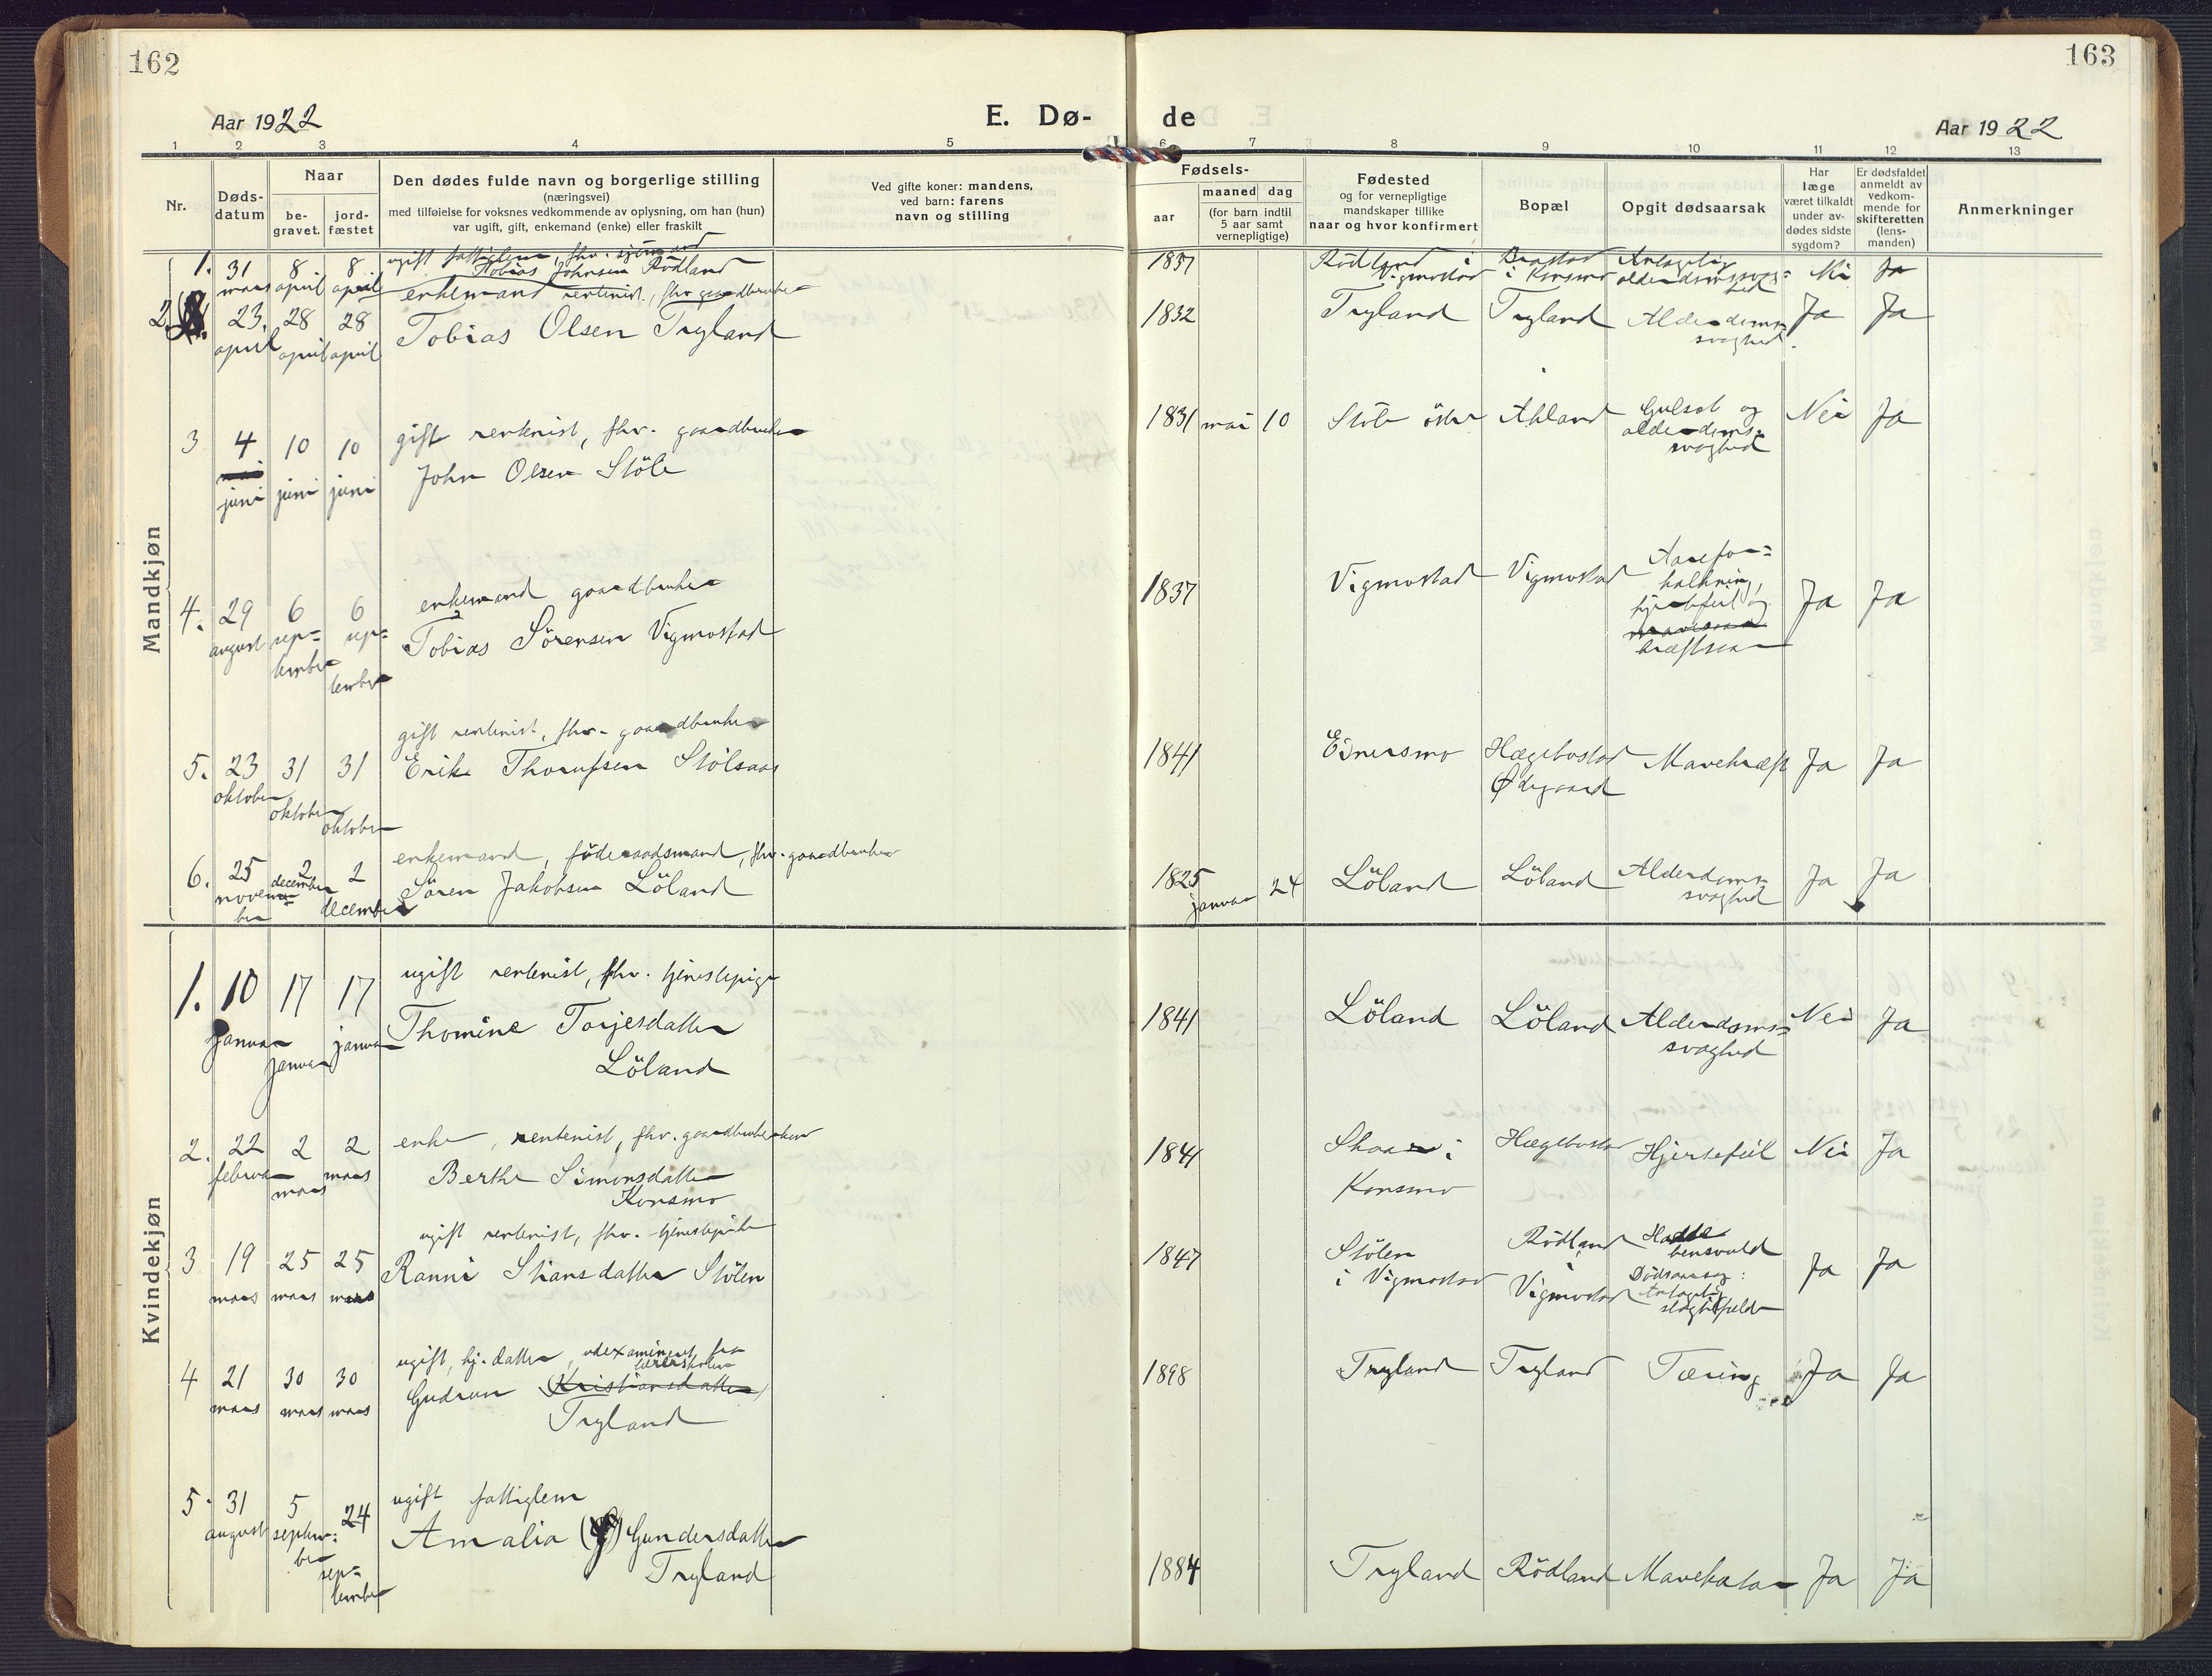 162
163
Aar 1922
E. Dø-
de
Aar 1922
1 2 3 4 5 6 7 8 9 10 11 12 13
Nr.
Døds-
datum
Naar
be-
gravet.
jord-
fæstet
Den dødes fulde navn og borgerlige stilling
(næringsvei)
med tilføielse for voksnes vedkommende av oplysning, om han (hun)
var ugift, gift, enkemand (enke) eller fraskilt
Ved gifte koner: mandens,
ved barn: farens
navn og stilling
Fødsels-
aar
maaned dag
(for barn indtil
5 aar samt
vernepligtige)
Fødested
og for vernepligtige
mandskaper tillike
naar og hvor konfirmert
Bopæl
Opgit dødsaarsak
Har
læge
været tilkaldt
under av-
dødes sidste
sygdom?
Er dødsfaldet
anmeldt av
vedkom-
mende for
skifteretten
(lens-
manden)
Anmerkninger
Mandkjøn
1. 31 mars 8 april 8 april
ugift fattiglem, fhv. sjömand
Tobias Johnsen Rödland
1837 Rödland i
Vigmostad
i Konsmo
Antagelig
alderdomssvag=
hed
Nei Ja
2. 23. april 28 april 28 april
enkemand rentenist, fhv gaardbruker
Tobias Olsen Tryland
1832 Tryland Tryland Alderdoms=
svaghed. Ja Ja
3 4 juni 10 juni 10 juni
gift rentenist, fhv. gaardbruker
John Olsen Stöle
1831 mai 10 Stöle östre Ahland Gulsot og
alderdoms=
svaghed
Nei Ja
4. 29 august 6 sep=
tember 6 sep=
tember
enkemand gaardbruker
Tobias Sörensen Vigmostad
1837 Vigmostad Vigmostad Aarefor=
kalkning,
hjertefeil og
kræftsaar
Ja Ja
5. 23 oktober 31 oktober 31 oktober
gift rentenist, fhv. gaardbruker
Erik Thorufsen Stölsaas
1841 Einersmo Hægebostad
Ødegaard
Mavekræft Ja Ja
6. 25 novem=
ber 2 december 2 december
enkemand, föderaadsmand, fhv. gaardbruker
Sören Jakobsen Löland
1825 januar 24 Löland Löland Alderdoms=
svaghed Ja Ja
Kvindekjøn
1. 10 Januar 17 Januar 17 januar
ugift rentenist, fhv. tjenestepige
Thomine Torjesdatter
Löland
1841 Löland Löland Alderdoms=
svaghed Nei Ja
2. 22 februar 2 mars 2 mars
enke, rentenist, fhv. gaardbrukerkone
Berthe Simonsdatter
Konsmo
1841 Skaar i
Konsmo
Hægebostad Hjertefeil Nei Ja
3 19 mars 25 mars 25 mars
ugift rentenist, fhv. tjenestepike
Ranni Stiansdatter Stölen
1847 Stölen
i Vigmostad
Rödland
i
Vigmostad
Hadde
bensvuld
Dödsaarsag:
Antagelig
slagtilfelde
Ja Ja
4 21 mars 30 mars 30 mars
ugift, hj. datter, udexamineret fra
lærerskolen
Gudrun (Kristiansdatter)
Tryland
1898 Tryland Tryland Tæring Ja Ja
5. 31 august 5 septem=
ber 24 sep=
tember
ugift fattiglem
Amalia Gundersdatter
Tryland
1884 Tryland Rödland Mavekatar Ja Ja